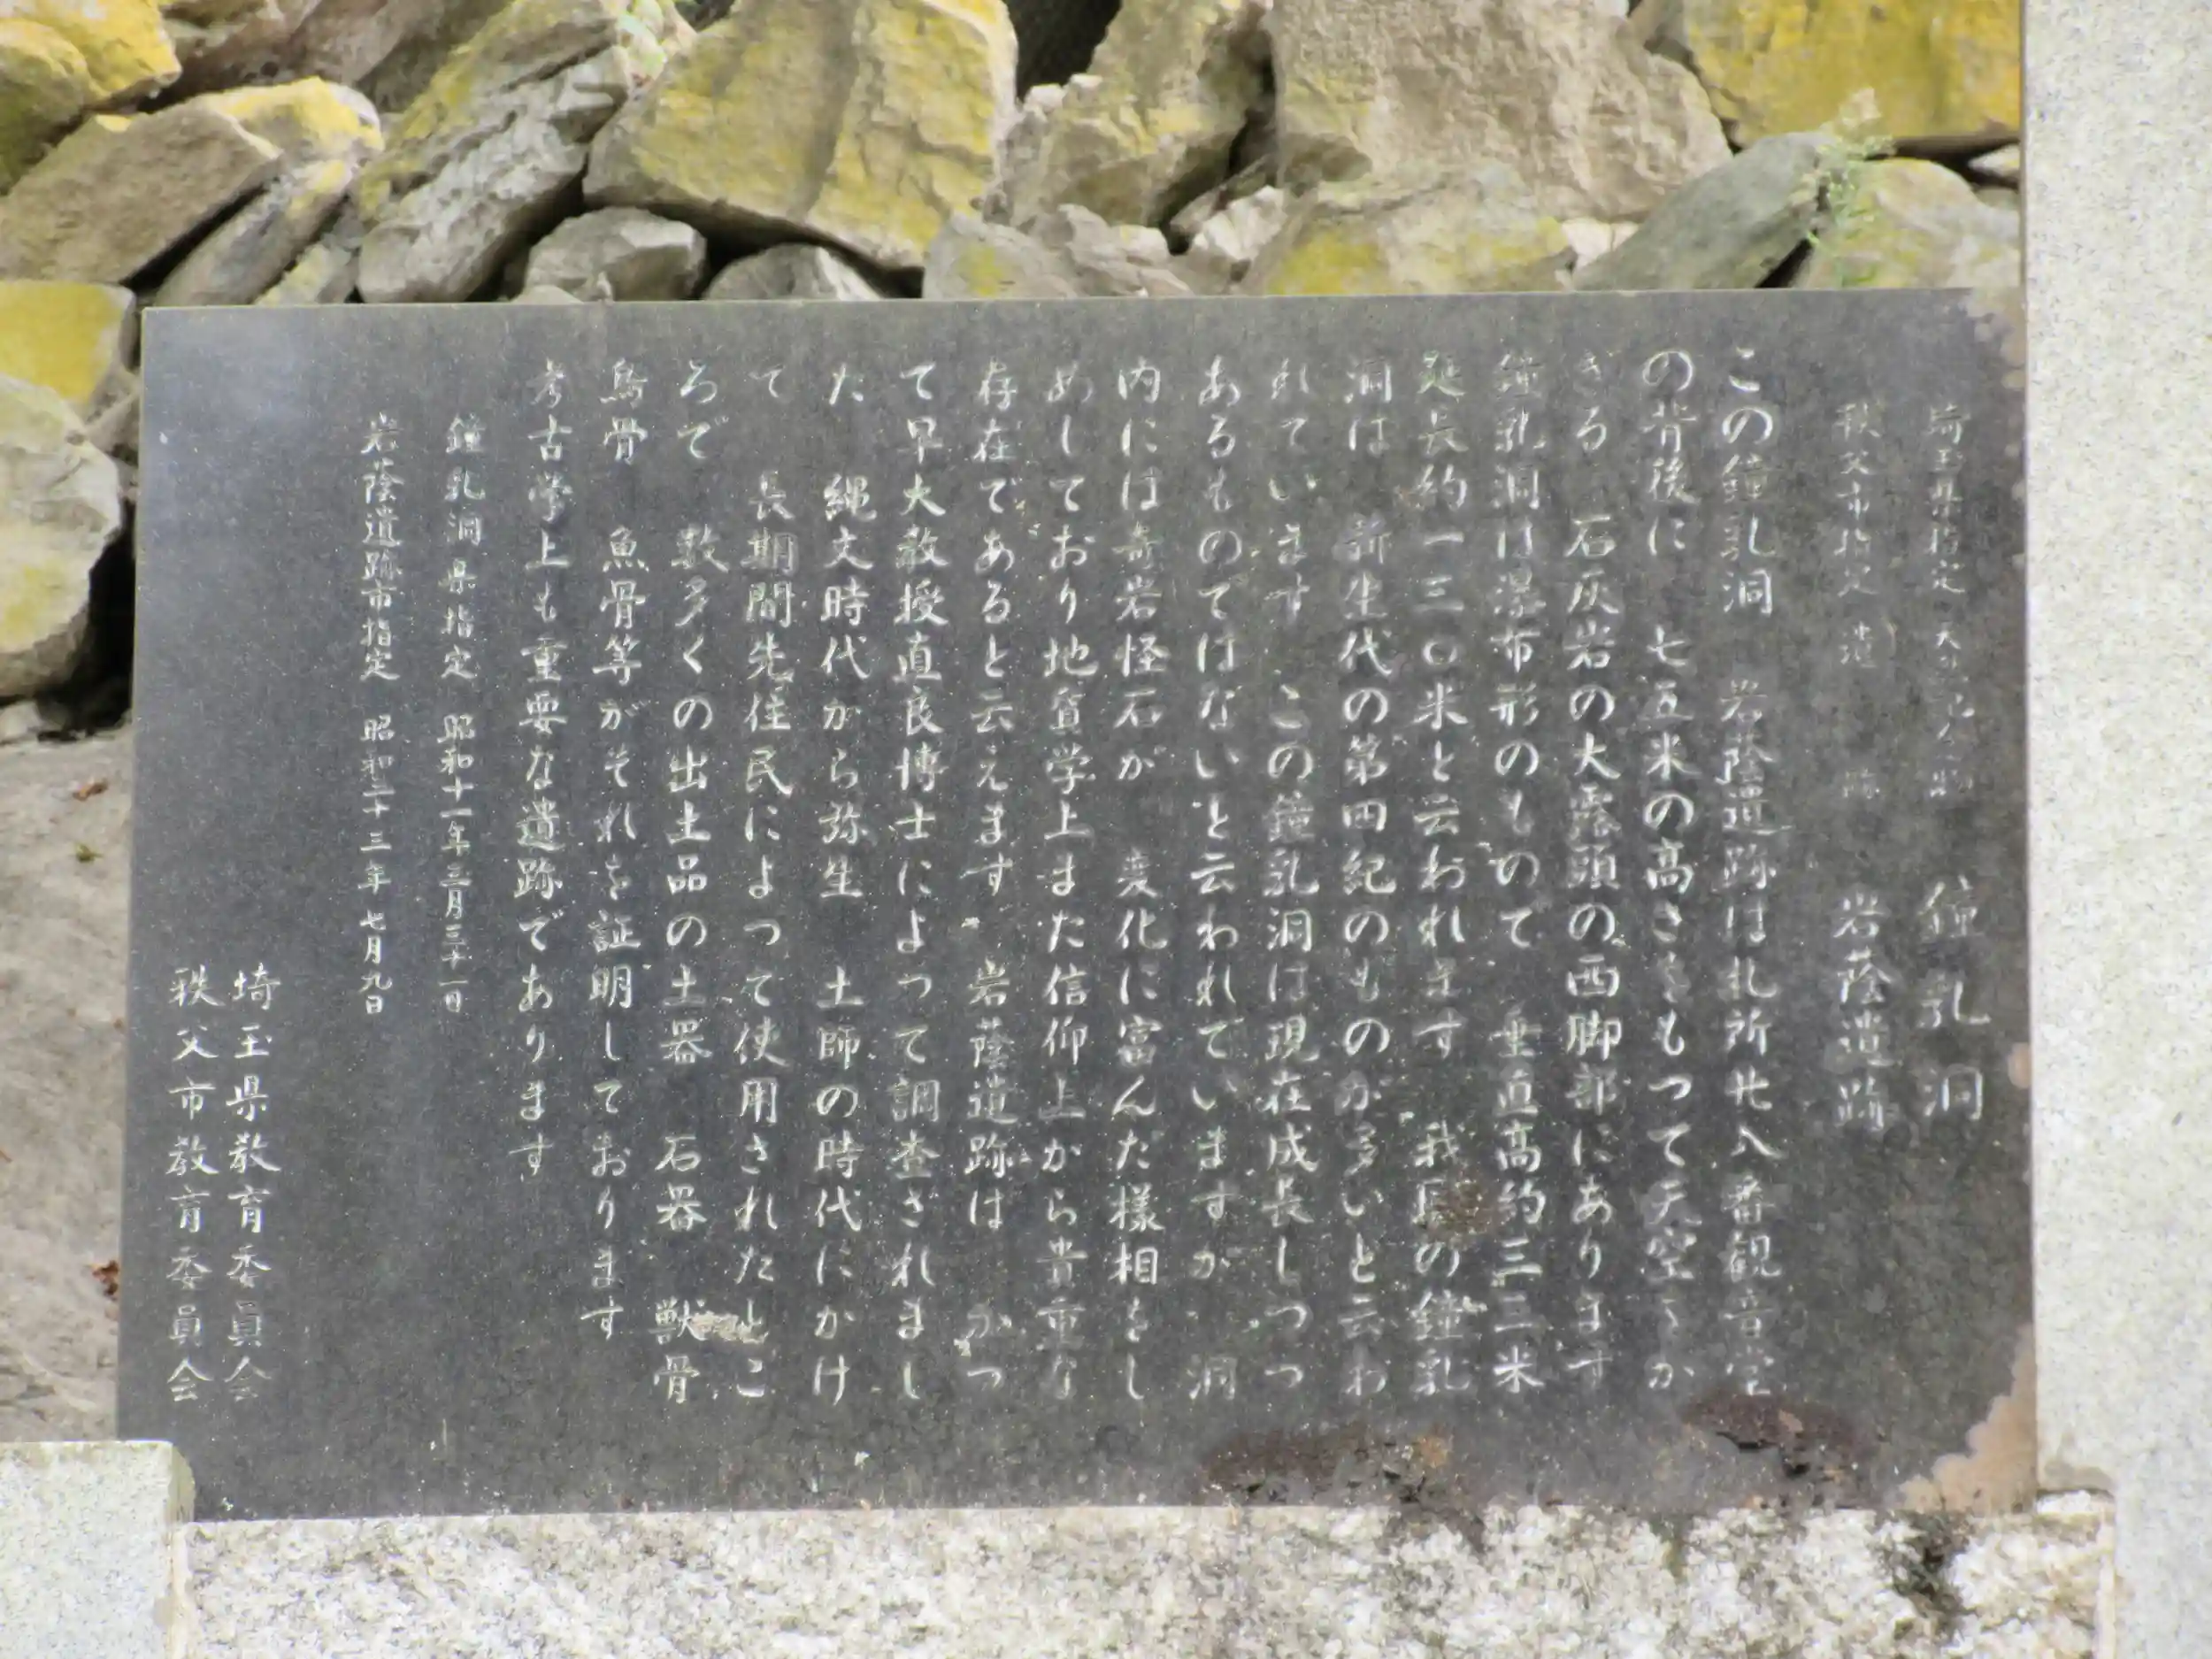 埼玉県指定 天然記念物 鐘乳洞
秩父市指定 遺跡 岩蔭遺跡
この鐘乳洞 岩蔭遺跡は札所廿八番観音堂
の背後に 七五米の高さをもつて天空をか
ぎる 石灰岩の大露頭の西脚部にあります
鐘乳洞は瀑布形のもので 垂直高約三三米
延長約一三〇米と云われます 我国の鐘乳
洞は 新生代の第四紀のものが多いと云わ
れています この鐘乳洞は現在成長しつつ
あるものではないと云われていますが 洞
内には奇岩怪石が 変化に富んだ様相をし
めしており地質学上また信仰上から貴重な
存在であると云えます 岩蔭遺跡は かつ
て早大教授直良博士によつて調査されまし
た 縄文時代から弥生 土師の時代にかけ
て 長期間先住民によつて使用されたとこ
ろで 数多くの出土品の土器 石器 獣骨
鳥骨 魚骨等がそれを証明しております
考古学上も重要な遺跡であります
鐘乳洞県指定 昭和十一年三月三十一日
岩蔭遺跡市指定 昭和三十三年七月九日
埼玉県教育委員会
秩父市教育委員会